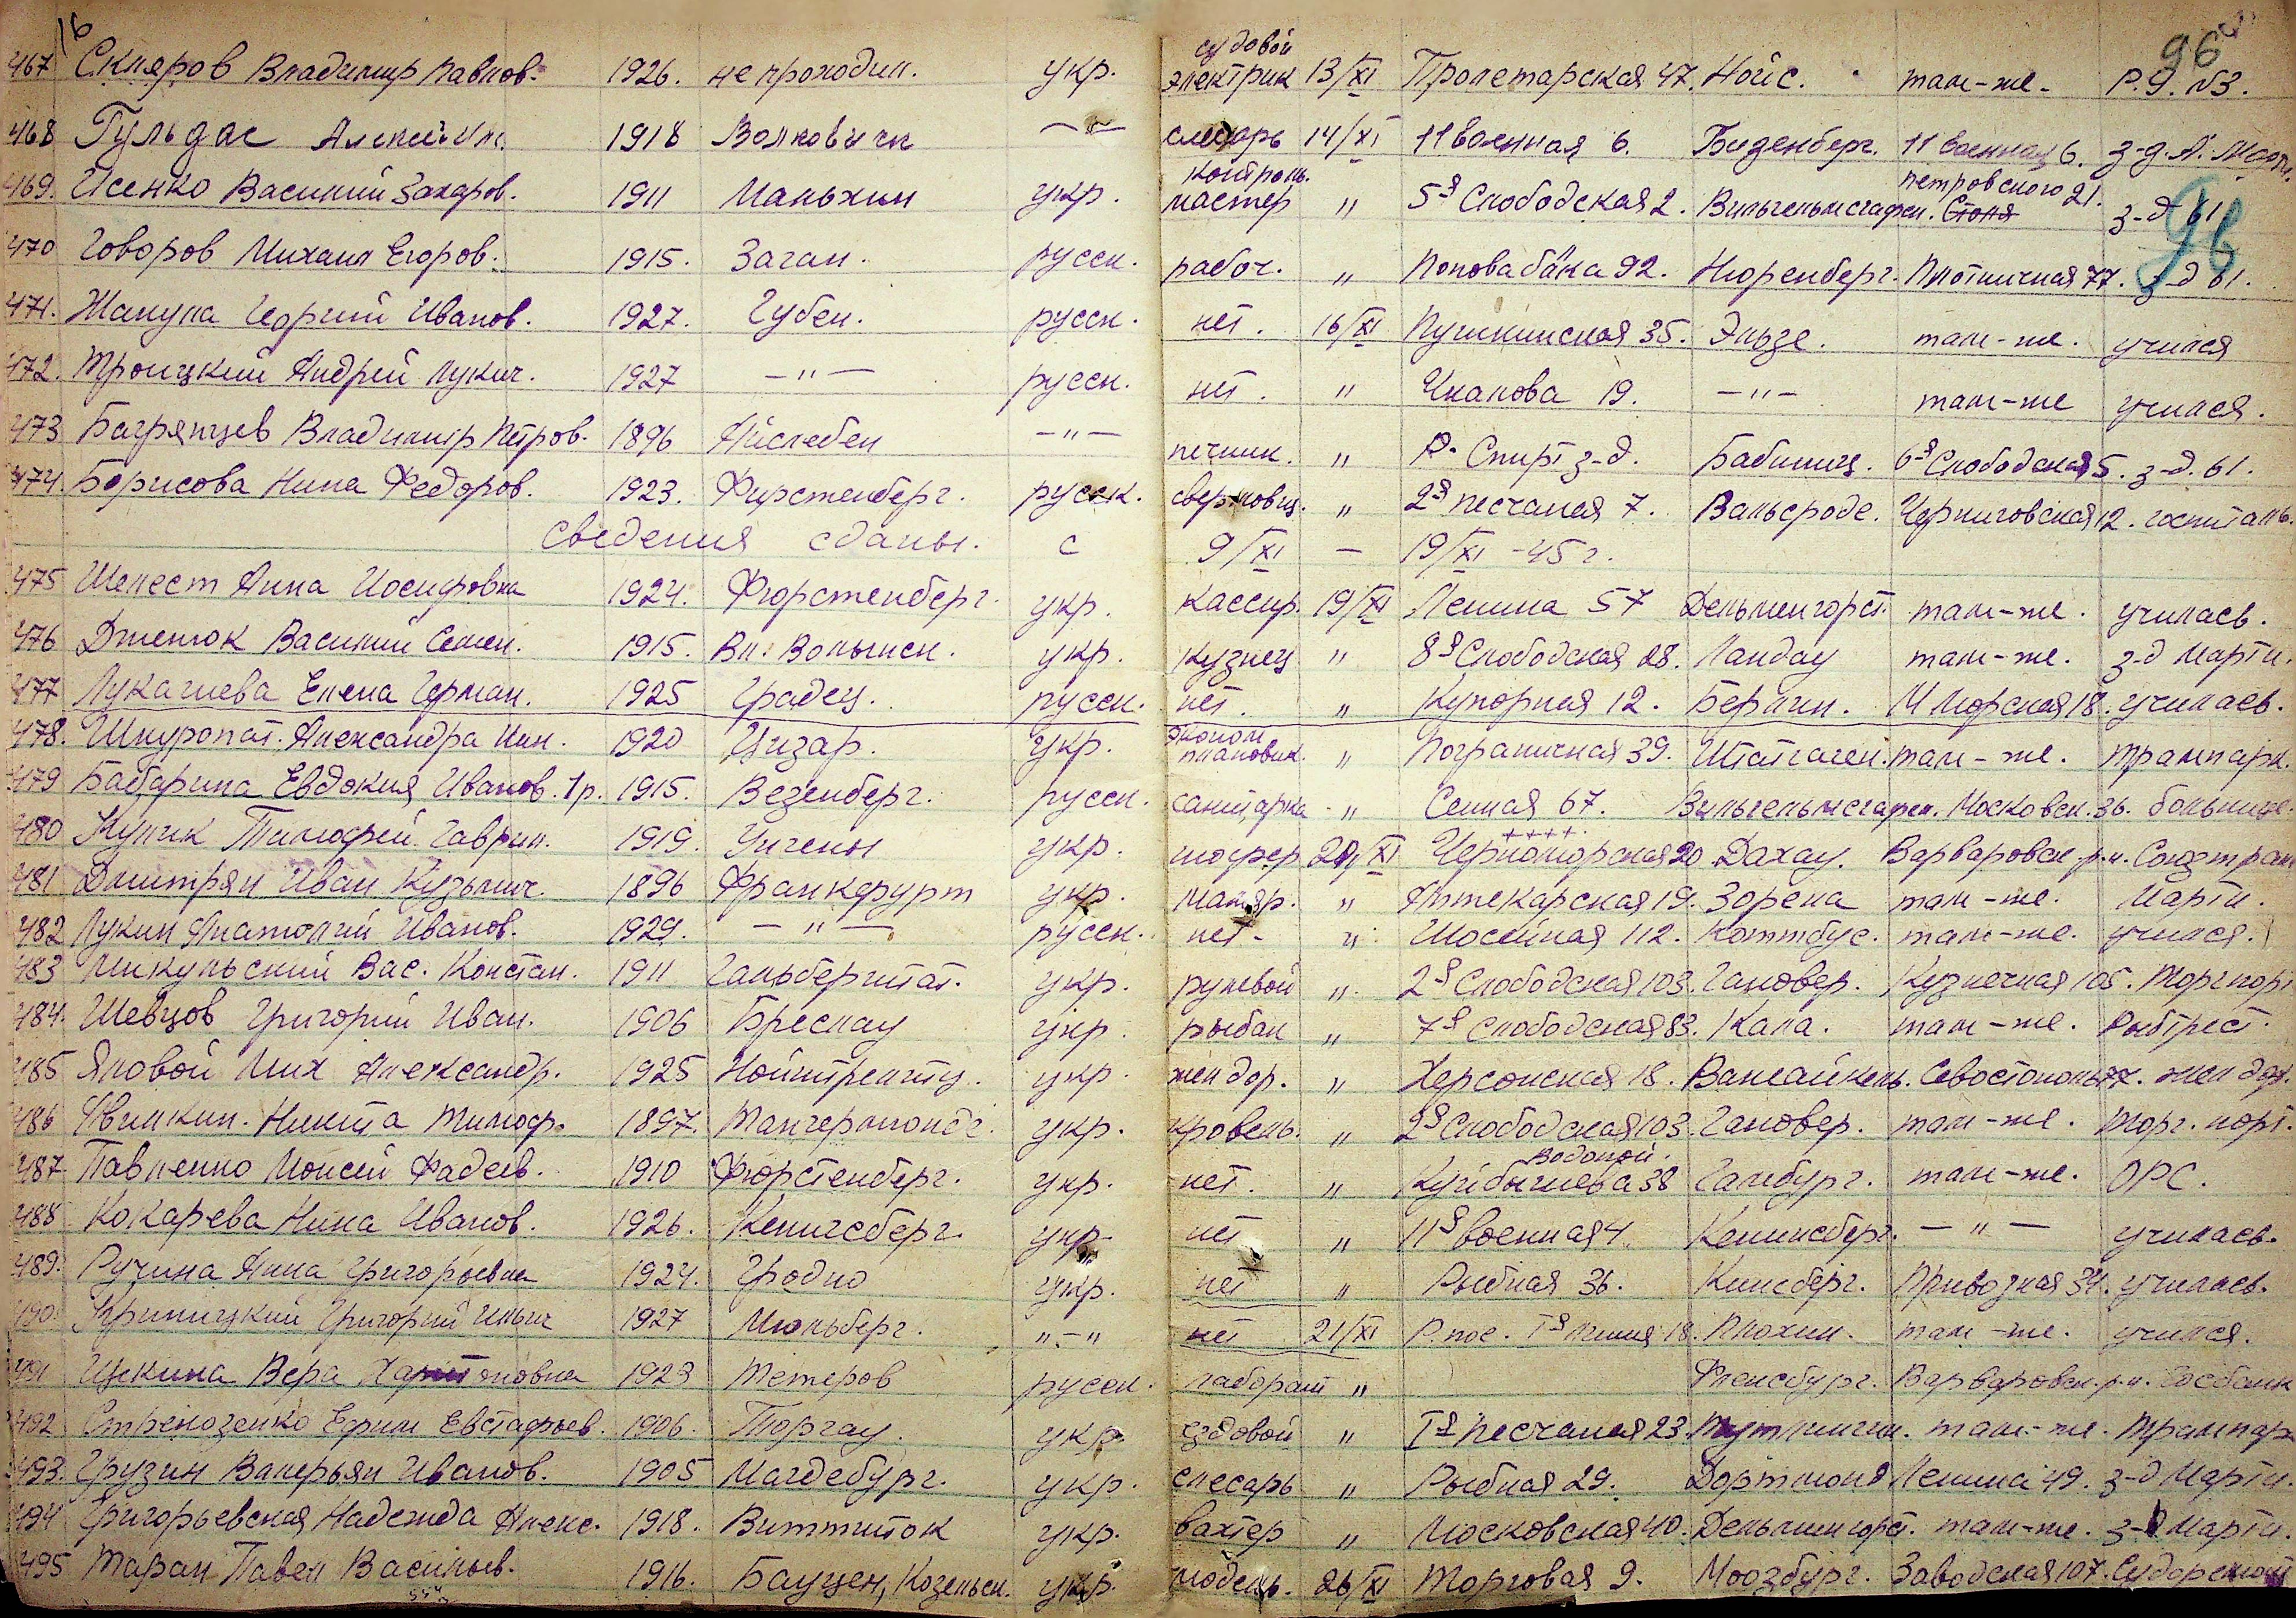 16 96
467 Скляров Владимир Павлов. 1926. не проходил. укр. судовой электрик 13/XI Пролетарская 47. Нойс. там-же. Р.У. №3.
468 Гульдас Алексей 1918 Волковычи —"— слесарь 14/XI 11 военная 6. Бизенберг. 11 военная 6. з-д. А. Марти.
469. Исенко Василий Захаров. 1911 Мальхин укр. контроль. мастер " 5я Слободская 2. Вильгельмсгафен. Петровского 21. з-д 61
96
470 Говоров Михаил Егоров. 1915. Заган. русск. рабоч. " Попова балка 92. Нюренберг. Плотничная 77. з-д 61.
471. Жакула Георгий Иванов. 1927. Губен. русск. нет. 16/XI Пушкинская 35. Эльзе. там-же. учился
472. Троицкий Андрей Лукич. 1927 —"— русск. нет. " Чкалова 19. —"— там-же учился.
473 Багрянцев Владимир Петров. 1896 Айслебен —"— печник. " Р. Спирт з-д. Бабиниц. 6я Слободская 5. з-д. 61.
474. Борисова Нина Федоров. 1923. Фирстенберг. русск. сверловщ. " 2я песчаная 7. Вальсроде. Черниговская 12. госпиталь.
Сведения сданы. с 9/XI — 19/XI -45 г.
475 Шелест Анна Иосифовна 1924. Фюрстенберг. укр. кассир. 19/XI Ленина 57 Дельменгорст. там-же. училась.
476 Дженюк Василий Семен. 1915. Вл. Волынск. укр. кузнец " 8я Слободская 28. Ландау там-же. з-д Марти.
477 Лукачева Елена Герман. 1925 Градец. русск. нет. " Купорная 12. Берлин. М Морская 18. училась.
478. Шкуропат. Александра Ник. 1920 Цизар. укр. эконом плановик. " Пограничная 39. Штатгаген. там-же. трампарк.
479 Бабарина Евдокия Иванов. 1р. 1915. Везенберг. русск. санитарка " Сенная 67. Вильгельмсгафен. Московск. 36. больнице.
480 Кулик Тимофей Гаврил. 1919. Унгены укр. шофер 20/XI Черноморская 20 Дахау. Варваровск. р-н. Союзтранс
481 Дмитрян Иван Кузьмич. 1896 Франкфурт укр. маляр. " Аптекарская 19. Зорена там-же. Марти.
482 Лукин Анатолий Иванов. 1929. —"— русск. нет. " Шосейная 112. Коттбус. там-же. учился.
483 Микульский Вас. Констан. 1911 Гальберштат. укр. рулевой " 2я Слободская 103. Гановер. Кузнечная 105. Торгпорт
484. Шевцов Григорий Иван. 1906 Бреслау укр. рыбак " 7я Слободская 83. Кала. там-же. Рыбтрест.
485 Яловой Мих Александр. 1925 Нойштрелитц. укр. жел дор. " Херсонская 18. Вансайкель. Севастополь 77. жел дор.
486 Явилкин. Никита Тимоф. 1897. Тангермюнде. укр. кровель. " 2я Слободская 103. Гановер. там-же. Торг. порт.
487. Павленко Моисей Фадеев. 1910 Фюрстенберг. укр. нет. " Водопой. Куйбышева 38 Гамбург. там-же. ОРС.
488 Кокарева Нина Иванов. 1926. Кенигсберг. укр. нет " 11я военная 4. Кенинсберг. —"— училась.
489. Ручина Анна Григорьевна 1924. Гродно укр. нет " Рыбная 36. Кинсберг. Привозная 34. училась.
490. Криницкий Григорий Ильич 1927 Мюльберг. "-" нет 21/XI Р. пос. 1я линия 18. Плохин. там-же. учился.
491 Щекина Вера Харитоновна 1923 Тетеров русск. лаборант " Фленсбург. Варваровск. р-н. Госбанк
492 Стрекозенко Ефим Евстафьев. 1906. Торгау. укр. ездовой " 1я песчаная 23. Тутлинген. там-же. Трампар
493. Грузин Валерьян Иванов. 1905 Магдебург. укр. слесарь " Рыбная 29. Дортмонд Ленина 49. з-д Марти.
494 Григорьевская Надежда Алекс. 1918. Виттшток укр. вахтер " Московская 40. Дельменгорст. там-же. з-д Марти.
495 Таран Павел Васильев. 1916. Бауцен, Козельск. укр. модель. 26/XI Торговая 9. Моозбург. Заводская 107.